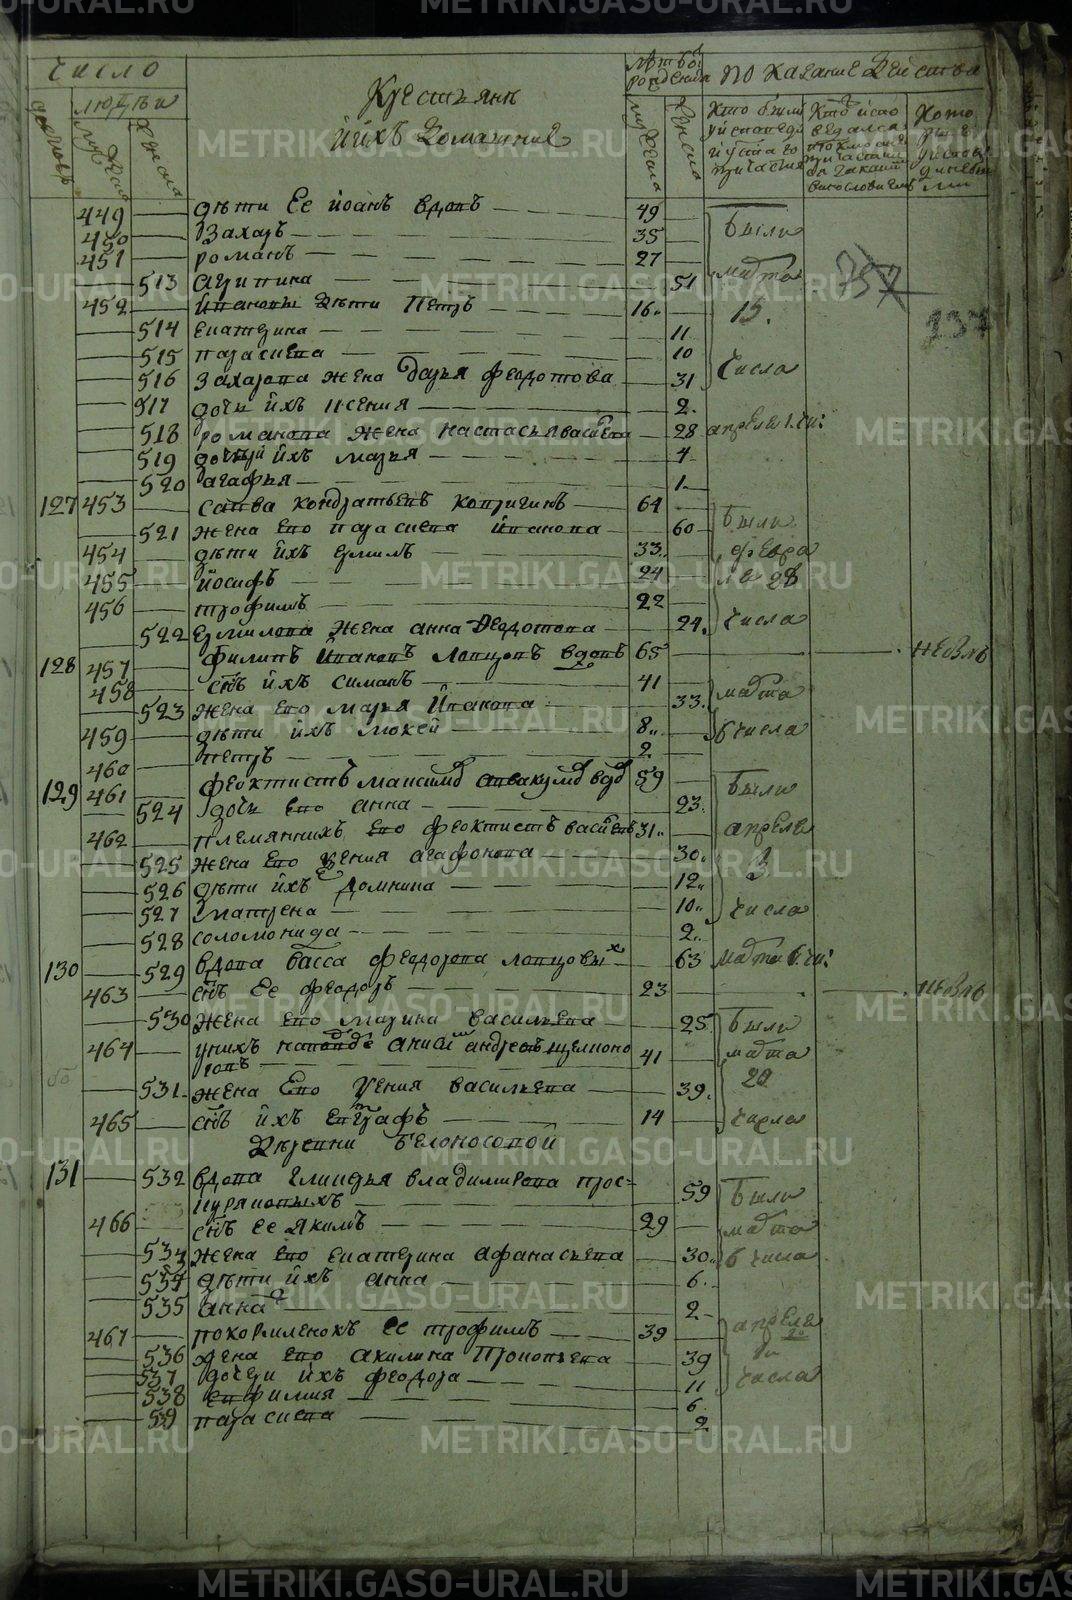 число
Крестьянъ
лѣтъ от рождения
показание действа
людьи
ИИхъ домашние
Кто были у исповеди и у святаго причастия
449 дѣти Ее иоанъ вдовъ 49
были
450 Захаръ 35
451 романъ 27
513 агрипина 51
марта
452 Ивановы дѣти Петръ 16
15.
757
237
514 екатерина 11
515 параскева 10
числа
516 Захарова жена Дарья Феодотова 31
517 дочь ихъ ксения 2.
518 романова жена настасья васильева 28
апреля 1. чи:
519 дочери ихъ марья 4
520 агафья 1
127 453 савва кондратьевъ копригинъ 64
521 жена его параскева иванова 60
были
454 дѣти ихъ ермилъ 33
февра
455 иосифъ 24
ля 28
456 трофимъ 22
числа
522 ермилова жена анна Феодотова 24.
128 457 филипъ Ивановъ лопцовъ вдовъ 65
неовлъ
458 сынъ ихъ симанъ 41
марта
523 жена его марья Иванова 33
459 дѣти ихъ мокей 8
6 числа
460 петръ 2
129 461 феоктистъ максимовъ авакумовъ вдовъ 59
были
524 дочь его анна 23
апреля
462 племянникъ его феоктистъ васильевъ 31
525 жена Его ксения агафонова 30
3
526 дѣти ихъ Домнина 12
527 матрена 10
числа
528 соломонида 2
130 529 вдова васса феодорова лопцовых 63
марта 6. чи:
463 сынъ Ее феодоръ 23
неовлъ
530 жена его марина васильева 25
были
464 у нихъ анисимъ андреевъ щелконо
говъ 41
марта
20
531 жена Его ксения васильева 39
465 сынъ ихъ евграфъ 14
числа
Деревни Белоносовой
131 532 вдова гликерья владимирова прос-
куряковыхъ 59
были
466 сынъ ее якимъ 29
марта
533 жена его екатерина афанасьева 30
6 числа
534 дѣти ихъ анна 6
535 анна 2
467 покормленокъ ее трофимъ 39
апреля
536 жена его акилина Прокопьева 39
537 дочери ихъ феодора 11
числа
538 евфимия 6
539 параскева 2
METRIKI.GASO-URAL.RU